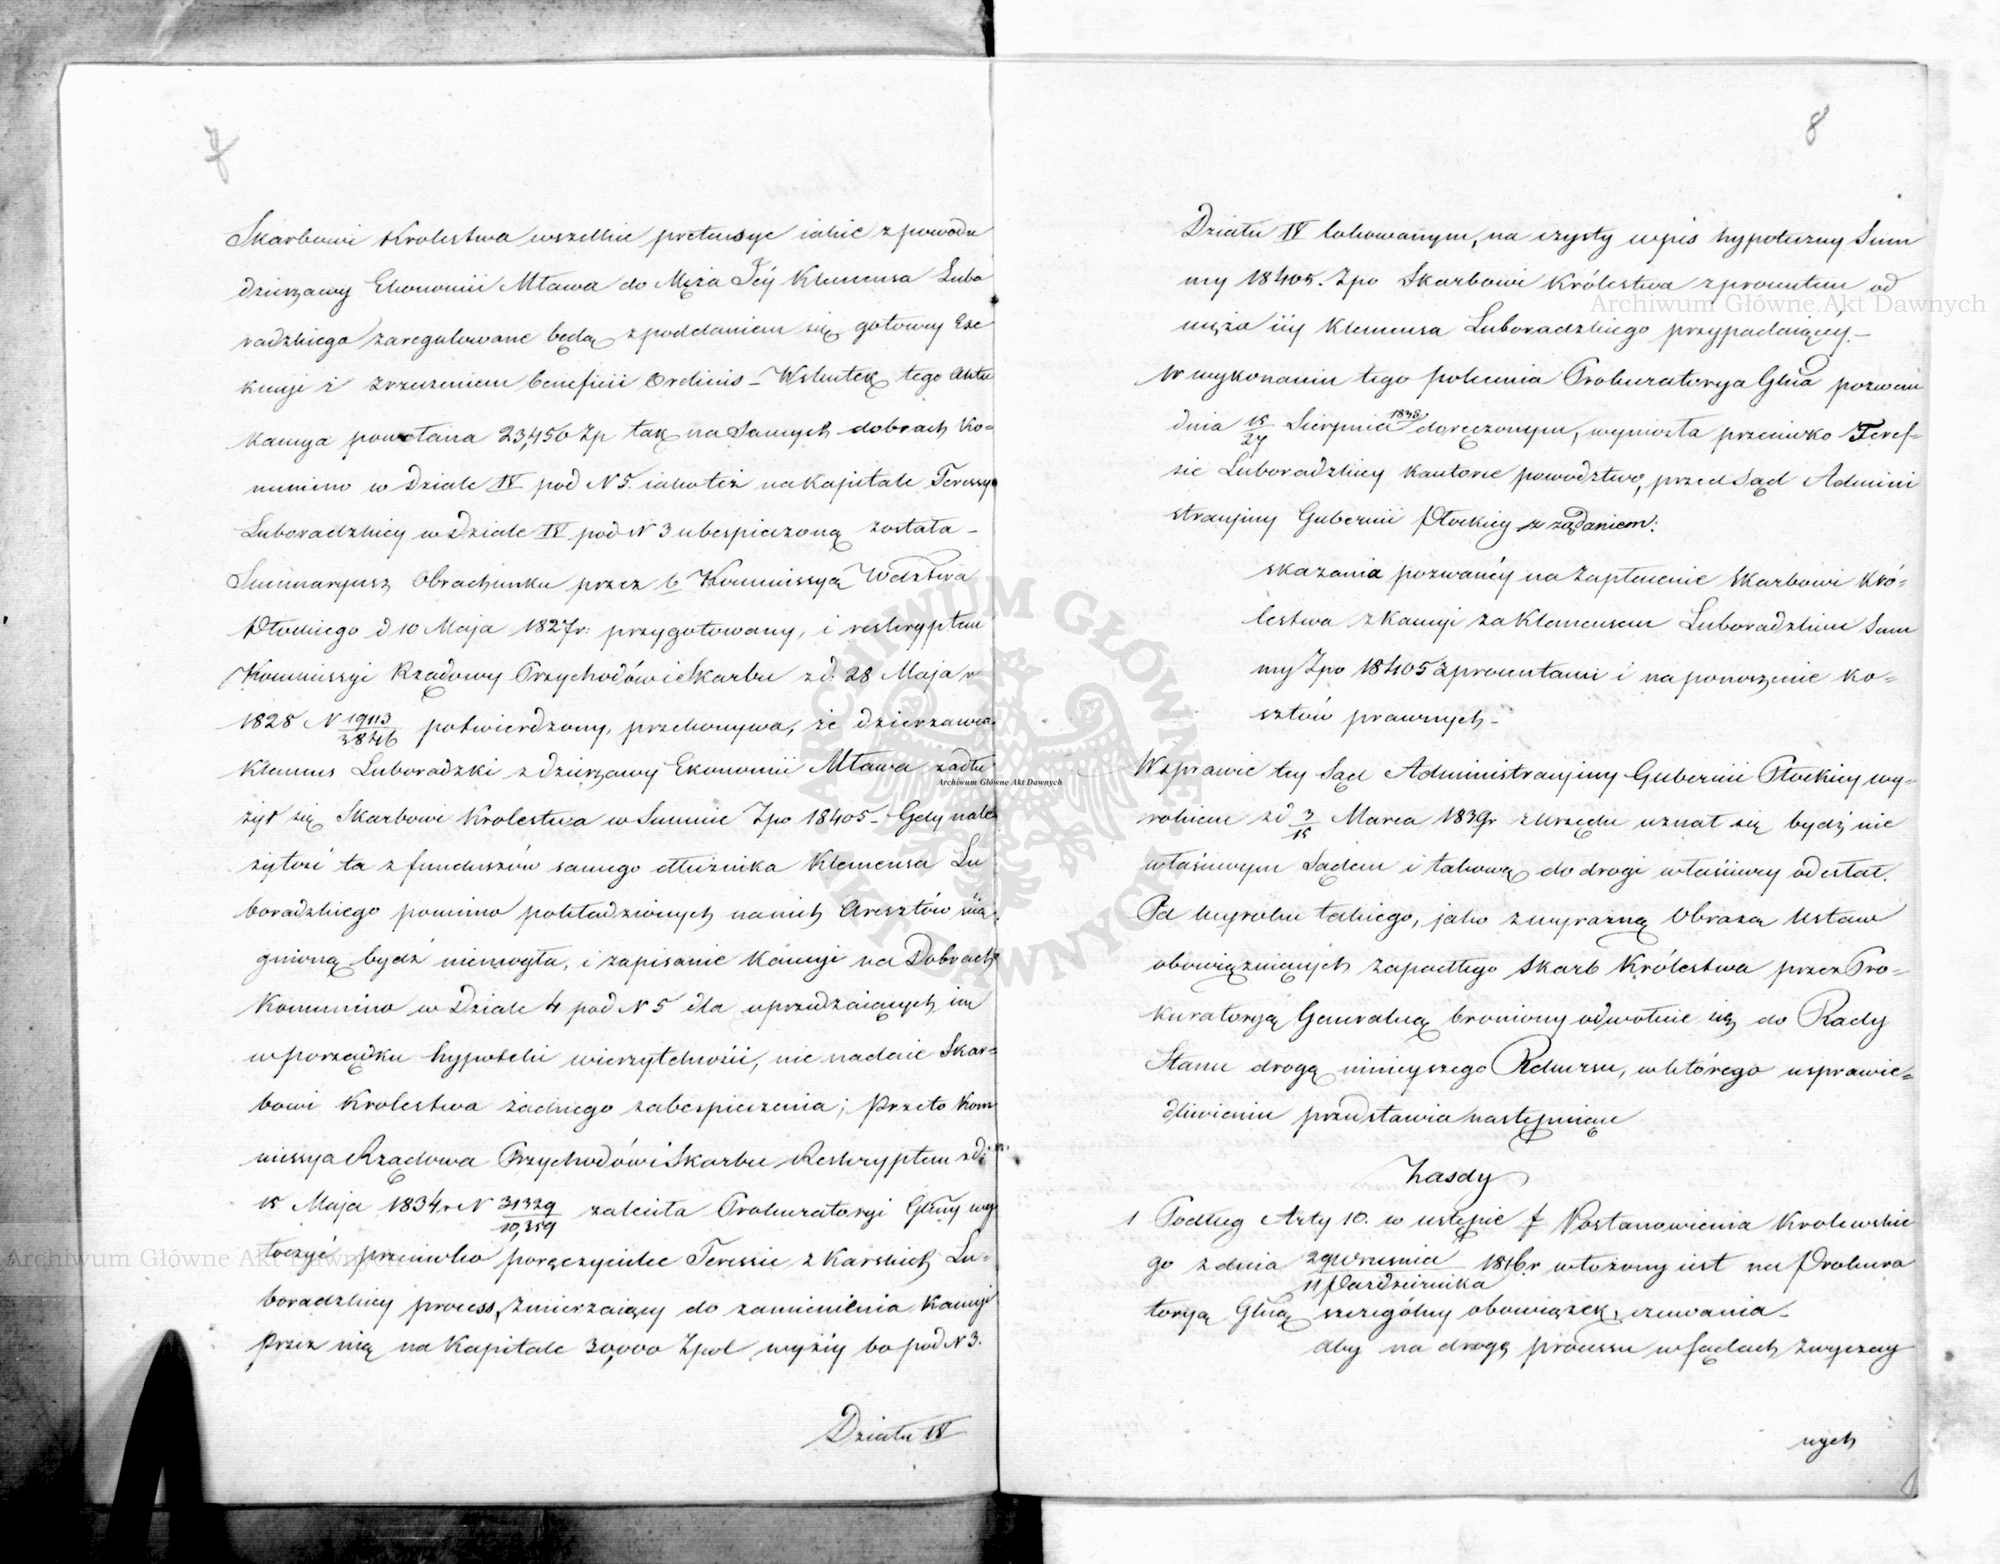 7
Skarbowi Krolestwa wszelkie pretensye iakie z powodu
dzierzawy Ekonomii Mława do Męża Jéy Klemensa Lubo
radzkiego zaregulowane będą z poddaniem się gotowy Exe
kucyi i zrzeczeniem beneficii Ordinis – Wskutek tego Aktu
Kaucya powołana 23,456 Zp tak na Samych dobrach Ko=
numino w Dziale IV pod N 5. iako też na Kapitale Teressy
Luboradzkiey w Dziale IV pod N 3 ubespieczoną została –
Summaryusz Obrachunku przez b. Kommissyą Wdztwa
Płockiego d 10 Maja 1827 r: przygotowany, i reskryptem
Kommissyi Rządowy Przychodów i Skarbu z d. 28 Maja r
1828 N 19113/38446 potwierdzony, przekonywa, że dzierzawca
Klemens Luboradzki z dzierzawy Ekonomii Mława zadłu
żył się Skarbowi Krolestwa w Summie Zpo 18405 – Gdy nale
żytość ta z funduszów samego dłużnika Klemensa Lu
boradzkiego pomimo pokładzionych na nich Aresztów ścią
gnioną bydź niemogła, i zapisanie Kaucyi na Dobrach
Konumino w Dziale 4 pod N 5 dla uprzedzaiących im
w porządku hypoteki wierzytelności, nie nadaie Skar=
bowi Krolestwa żadnego zabespieczenia; Przeto Kom
missya Rządowa Przychodów i Skarbu Reskryptem z d:
15 Maja 1834 r N 31329/10,359 zaleciła Prokuratoryi Glney wy
toczyć przeciwko poręczycielce Teressie z Karskich Lu=
boradzkiey process, zmierzaiący do zamienienia Kaucyi
Przez nią na Kapitale 30,000 Zpol wyżéy bo pod N 3.
Działu IV
8
Działu IV lokowanym, na czysty wpis hypoteczny Sum
my 18405. Zpo Skarbowi Królestwa z procentem od
męża iéy Klemensa Luboradzkiego przypadaiącéy. –
W wykonaniu tego polecenia Prokuratorya Glna pozwem
dnia 15/27 Sierpnia 1838 doręczonym, wyniosła przeciwko Teres=
sie Luboradzkiey kautorce powództwo, przed Sąd Admini
stracyiny Gubernii Płockiey z żądaniem:
skazania pozwanéy na Zapłacenie Skarbowi Kró=
lestwa z Kaucyi za Klemensem Luboradzkim Sum
my Zpo 18405 z procentami i na ponoszenie ko=
sztów prawnych –
W sprawie tey Sąd Administracyiny Gubernii Płockiey wy=
rokiem z d 3/15 Marca 1839 r z urzędu uznał się bydź nie
właściwym Sądem i takową do drogi właściwey odesłał.
Od Wyroku takiego, jako z wyraźną Obrazą Ustaw
obowiązuiących zapadłego Skarb Królestwa przez Pro=
kuratoryą Generalną broniony odwołuie się do Rady
Stanu drogą ninieyszego Rekursu, w którego usprawie=
dliwieniu przedstawia następuiące
Zasdy
1 Podług Arty 10. w ustępie f Postanowienia Krolewskie
go z dnia 29 Września/11 Października 1816 r włożony iest na Prokura
toryą Glną szczególny obowiązek, czuwania –
aby na drogę processu w sądach Zwyczay
nych
Archiwum Główne Akt Dawnych
Archiwum Główne Akt Dawnych
Archiwum Główne Akt Dawnych
ARCHIWUM GŁÓWNE AKT DAWNYCH